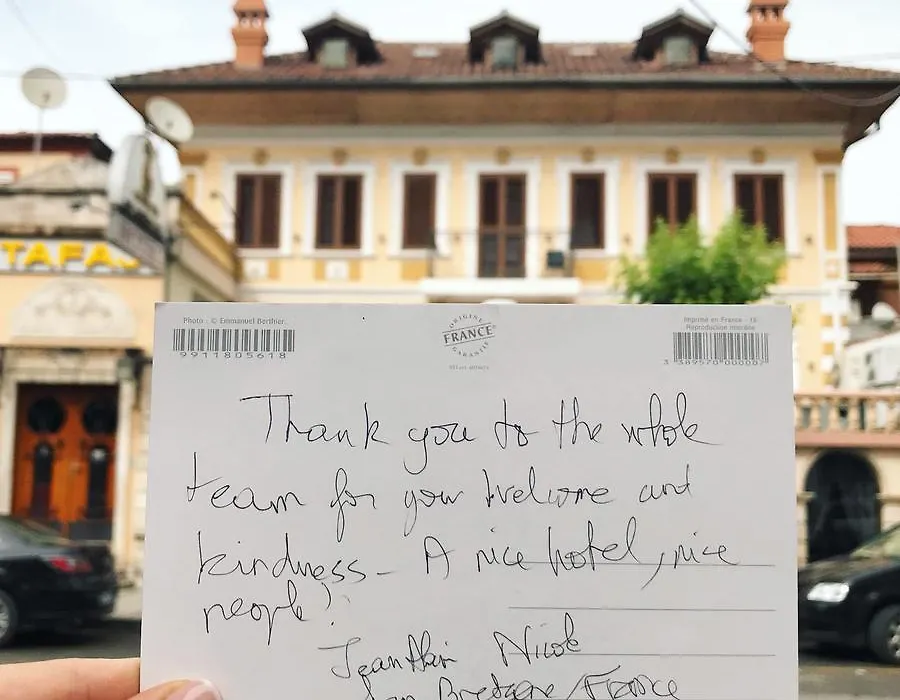 TAFAJ
Photo : © Emmanuel Berthier.
9911805618
ORIGINE
FRANCE®
GARANTIE
Imprimé en France - 15
Reproduction interdite
3 389570 000007
Thank you to the whole
team for your welcome and
kindness - A nice hotel, nice
people!
Nicole
Bretagne / France